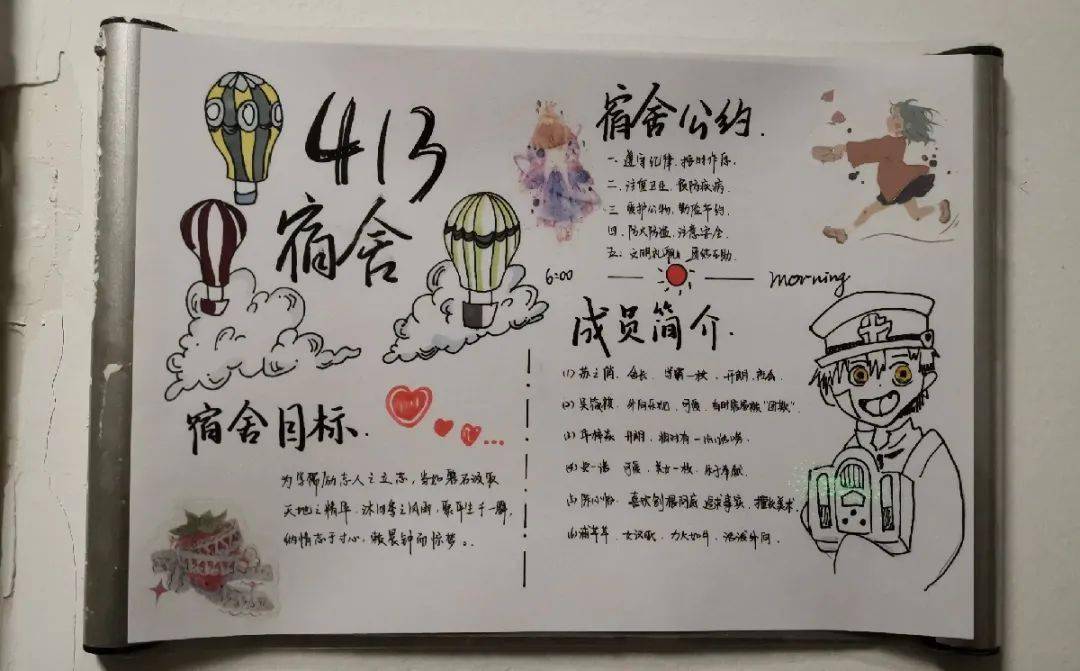 413
宿舍
宿舍公约.
一、遵守纪律,按时作息.
二、注重卫生,预防疾病.
三、爱护公物,勤俭节约.
四、防火防盗,注意安全.
五、文明礼貌,团结互助.
6:00
morning
成员简介.
(1) 舍长、学霸一枚、开朗
(2) 外向乐观、可爱、有时
(3) 开朗、相对有一点
(4) 可爱、美女一枚、乐于奉献
(5) 喜欢刨根问底 追求事实、擅长美术.
(6) 女汉子、力大如牛、活泼外向.
宿舍目标.
为学砺励志人之立志,当如磐石汲取
天地之精华,沐四季之风雨,聚平生于一瞬,
纳情志于寸心,赖晨钟而惊梦。